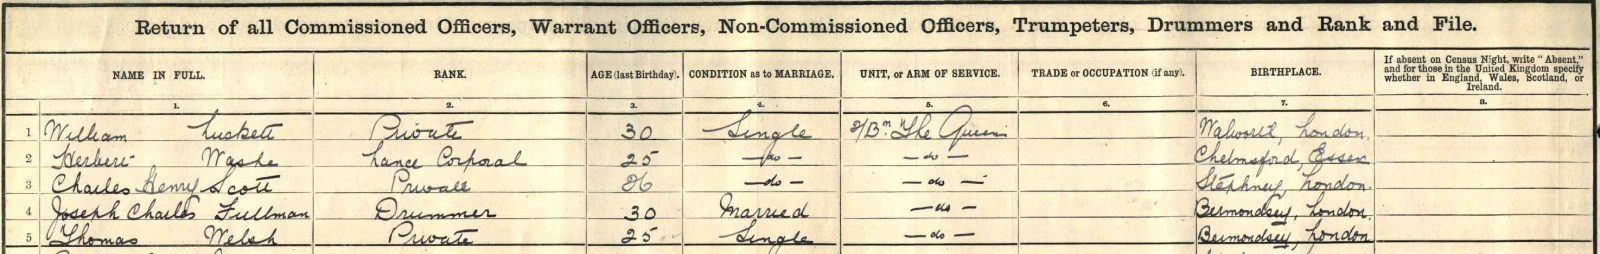 Return of all Commissioned Officers, Warrant Officers, Non-Commissioned Officers, Trumpeters, Drummers and Rank and File.
NAME IN FULL. RANK. AGE (last Birthday). CONDITION as to MARRIAGE. UNIT, or ARM OF SERVICE. TRADE or OCCUPATION (if any). BIRTHPLACE. If absent on Census Night, write "Absent," and for those in the United Kingdom specify whether in England, Wales, Scotland, or Ireland.
1. 2. 3. 4. 5. 6. 7. 8.
1 William Luckett Private 30 Single 2/Bn. The Queens Walworth, London.
2 Herbert Lance Corporal 25 —do— —do— Chelmsford, Essex
3 Charles Henry Scott Private 26 —do— —do— Stephney, London.
4 Joseph Charles Fullman Drummer 30 Married —do— Bermondsey, London.
5 Thomas Welsh Private 25 Single —do— Bermondsey, London